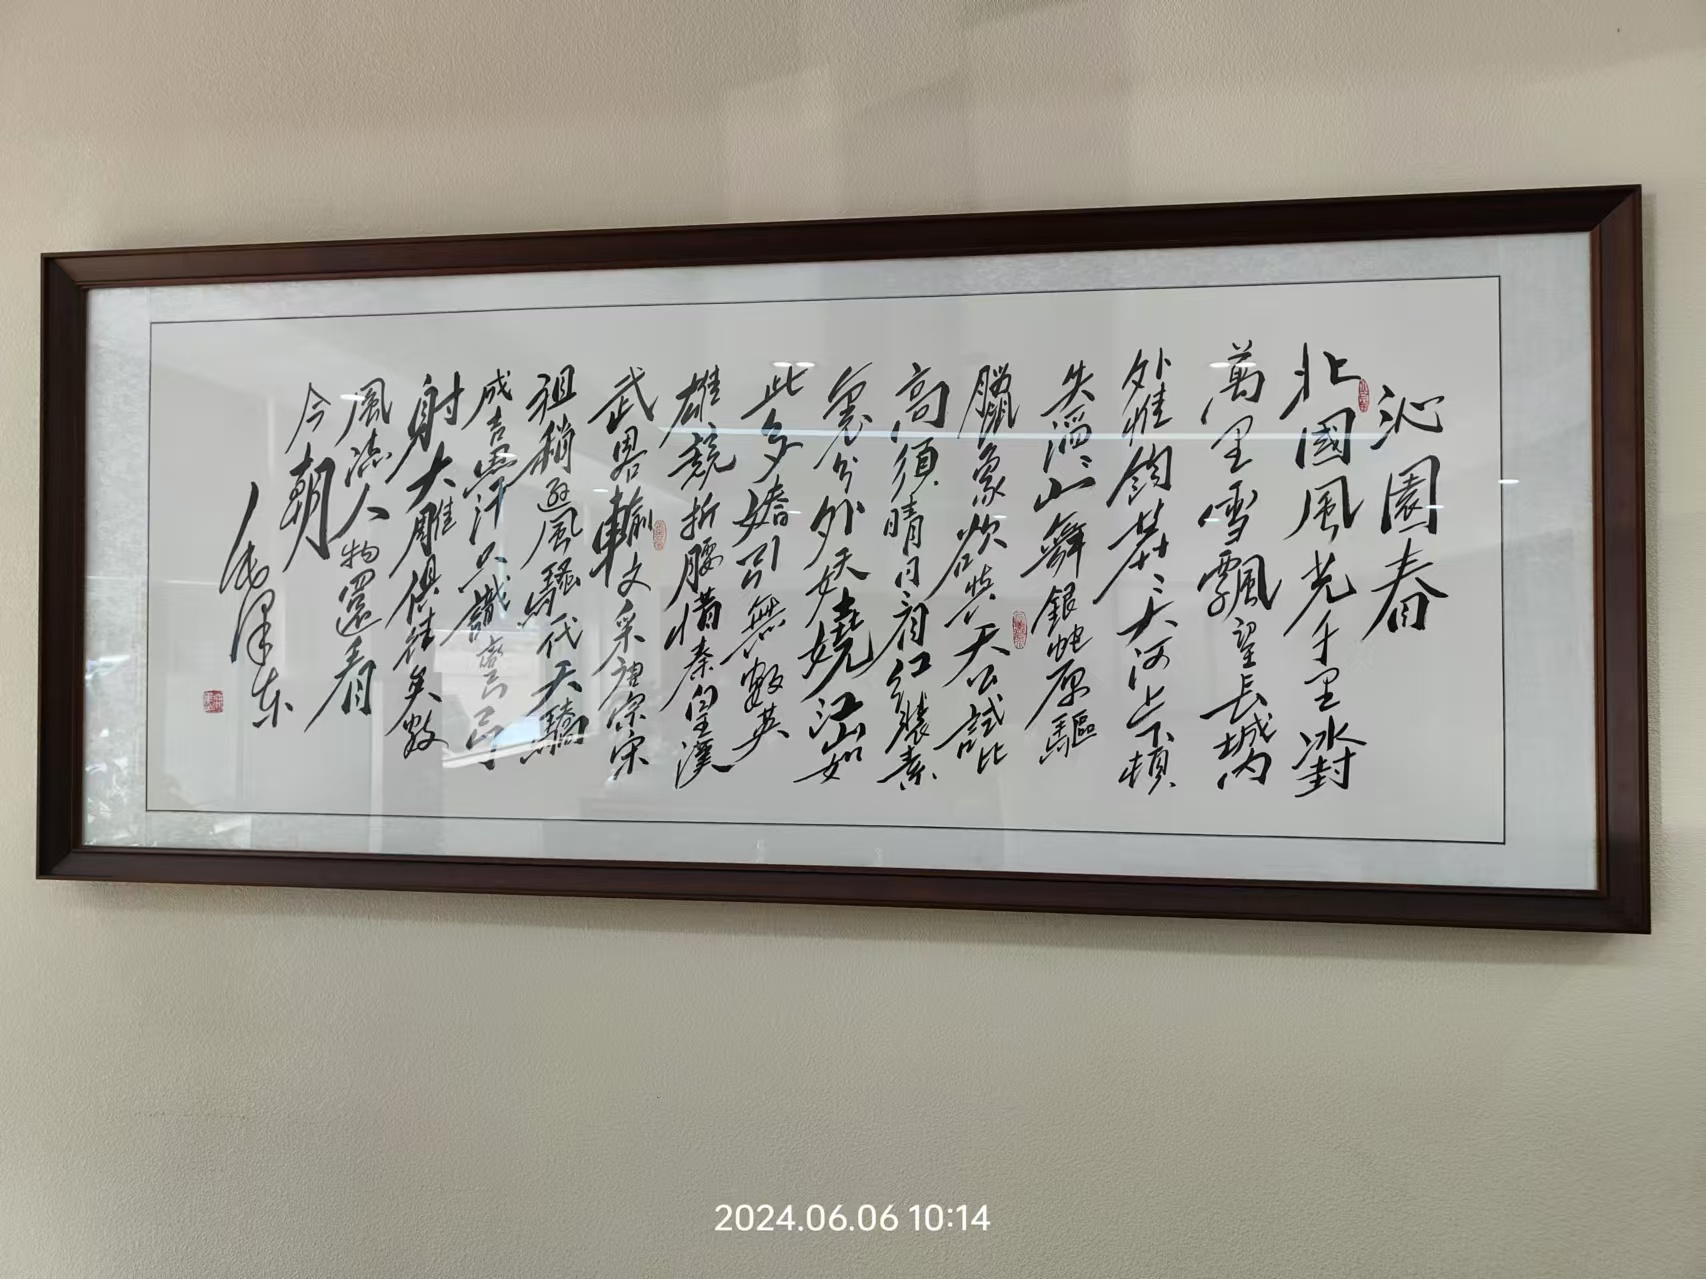 沁園春
北國風光千里冰封
萬里雪飄望長城内
外惟餘莽〻大河上下頓
失滔〻山舞銀蛇原驅
臘象欲與天公試比
高須晴日看紅裝素
裹分外妖嬈江山如
此多嬌引無數英
雄競折腰惜秦皇漢
武畧輸文采唐宗宋
祖稍遜風騷一代天驕
成吉思汗只識彎弓
射大雕俱往矣數
風流人物還看
今朝
毛澤东
2024.06.06 10:14